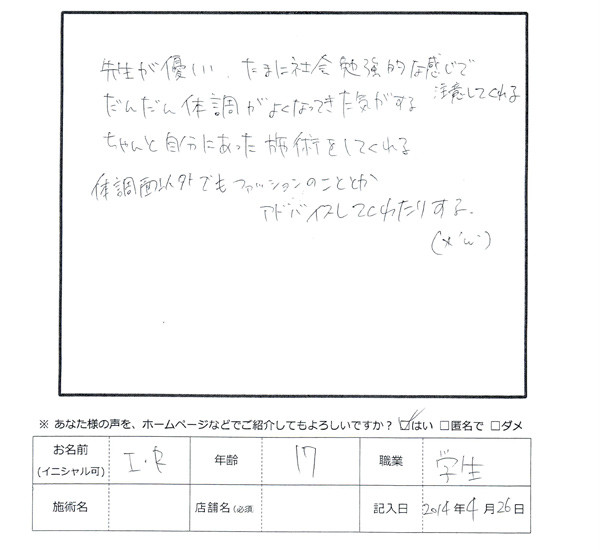 先生が優しい、たまに社会勉強的な感じで
注意してくれる
だんだん体調がよくなってきた気がする
ちゃんと自分にあった施術をしてくれる
体調面以外でもファッションのこととか
アドバイスしてくれたりする。
(×'ω')
※ あなた様の声を、ホームページなどでご紹介してもよろしいですか? ☑はい □匿名で □ダメ
お名前 (イニシャル可) I・R 年齢 17 職業 学生
施術名 店舗名(必須) 記入日 2014年4月26日